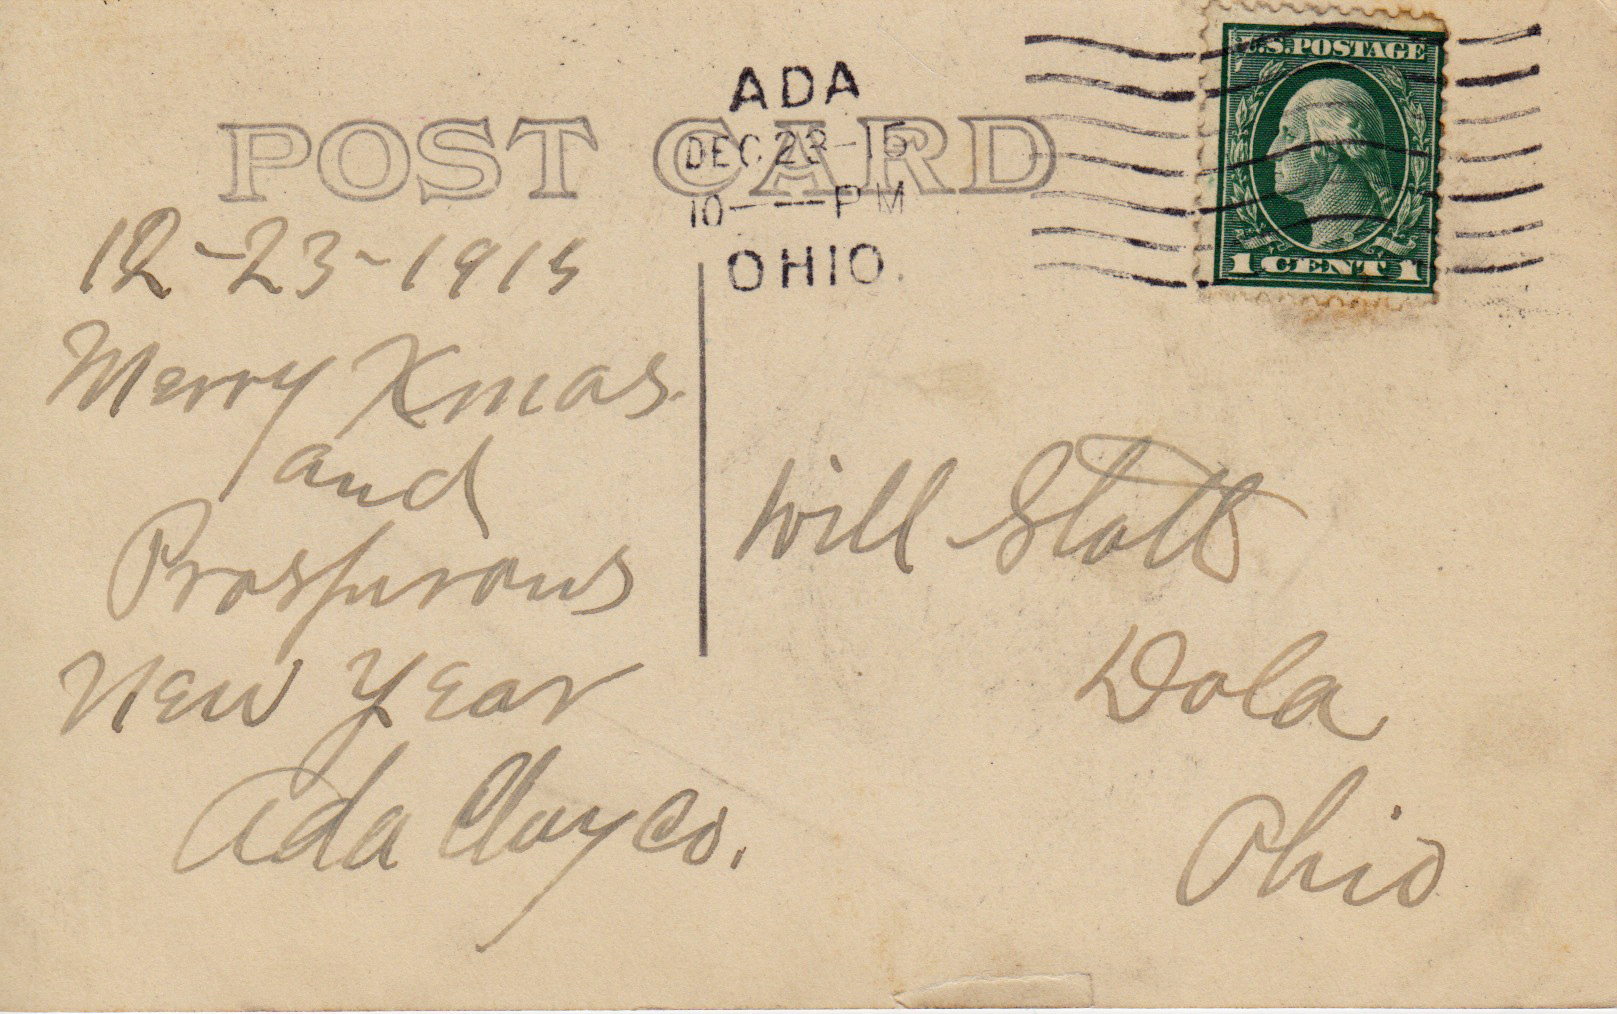 U.S.POSTAGE
1 CENT 1
ADA
DEC 23-15
10 PM
OHIO.
POST CARD
12-23-1915
Merry Xmas.
and
Prosperous
New Year
Ada Clay Co.
Will
Dola
Ohio